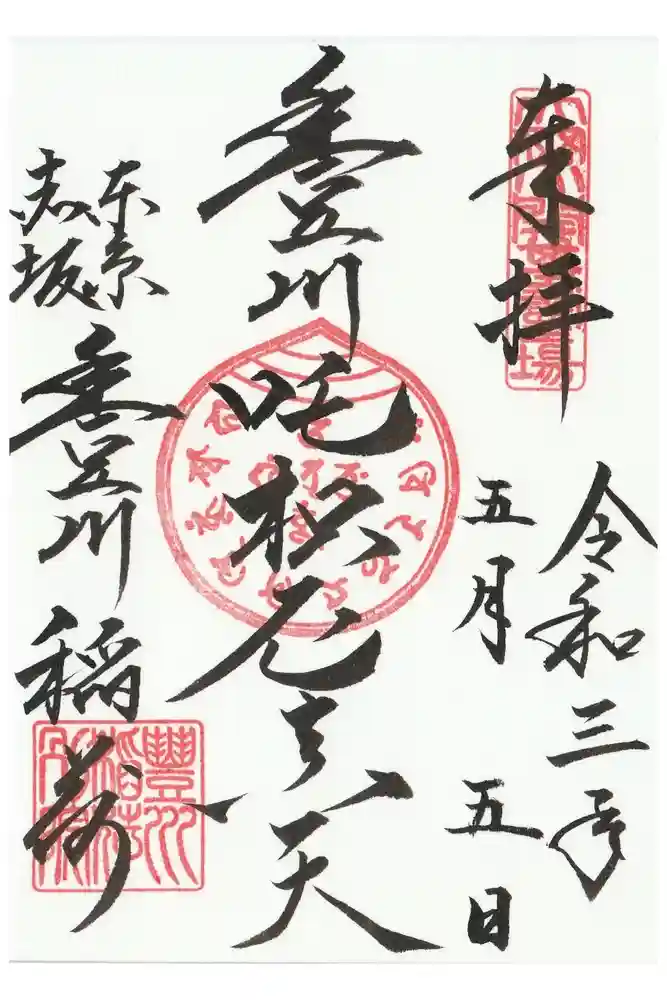 奉拝
令和三年
五月五日
豊川吒枳尼真天
東京
赤坂
豊川稲荷
豐川
稲荷
別院